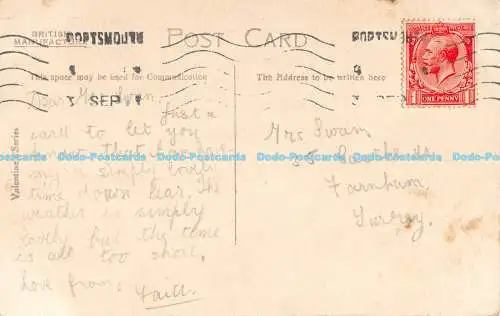 BRITISH
MANUFACTURE
PORTSMOUTH
POST CARD
PORTSMOUTH
This space may be used for Communication
The Address to be written here
SEP
ONE PENNY
Valentine's Series
Dear Mrs Swan,
Just a
card to let you
know that
a simply lovely
time down hear. The
weather is simply
lovely but the time
is all too short.
Love from,
Mrs Swan
55
Farnham,
Surrey.
Dodo-Postcards Dodo-Postcards Dodo-Postcards Dodo-Postcards Dodo-Postcards